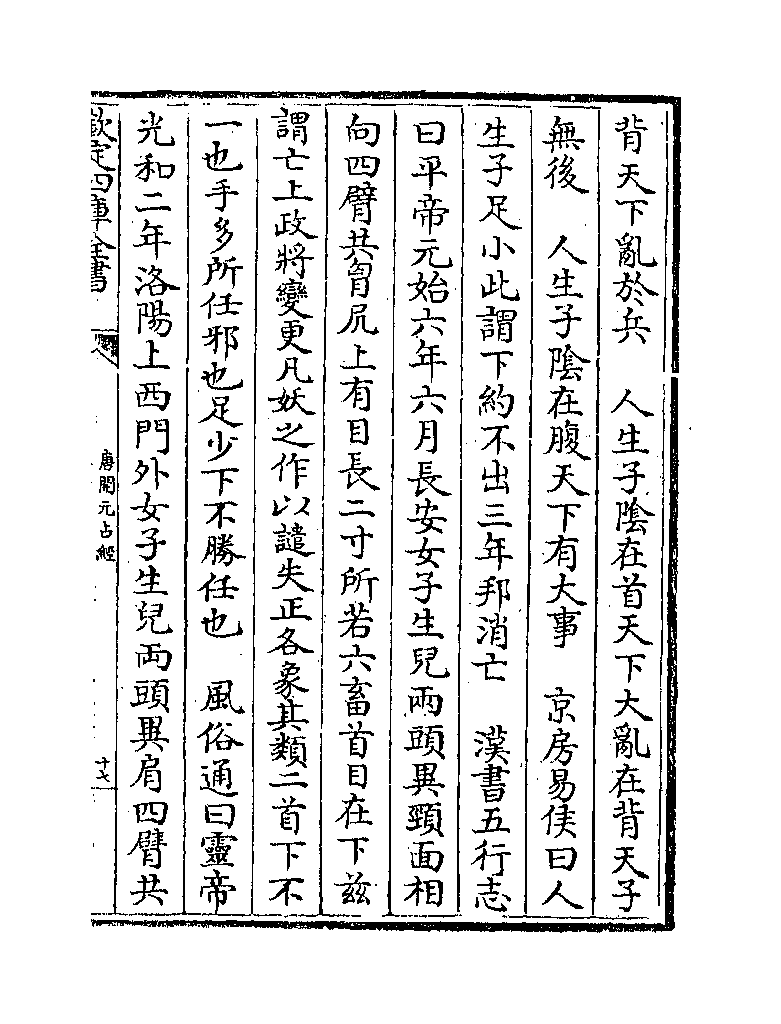 背天下亂於兵　人生子陰在首天下大亂在背天子
無後　人生子陰在腹天下有大事　京房易侯曰人
生子足小此謂下約不出三年邦消亡　漢書五行志
曰平帝元始六年六月長安女子生兒兩頭異頸面相
向四臂共胷尻上有目長二寸所若六畜首目在下茲
謂亡上政將變更凡妖之作以譴失正各象其類二首下不
一也手多所任邪也足少下不勝任也　風俗通曰靈帝
光和二年洛陽上西門外女子生兒兩頭異肩四臂共
欽定四庫全書
唐開元占經
十七